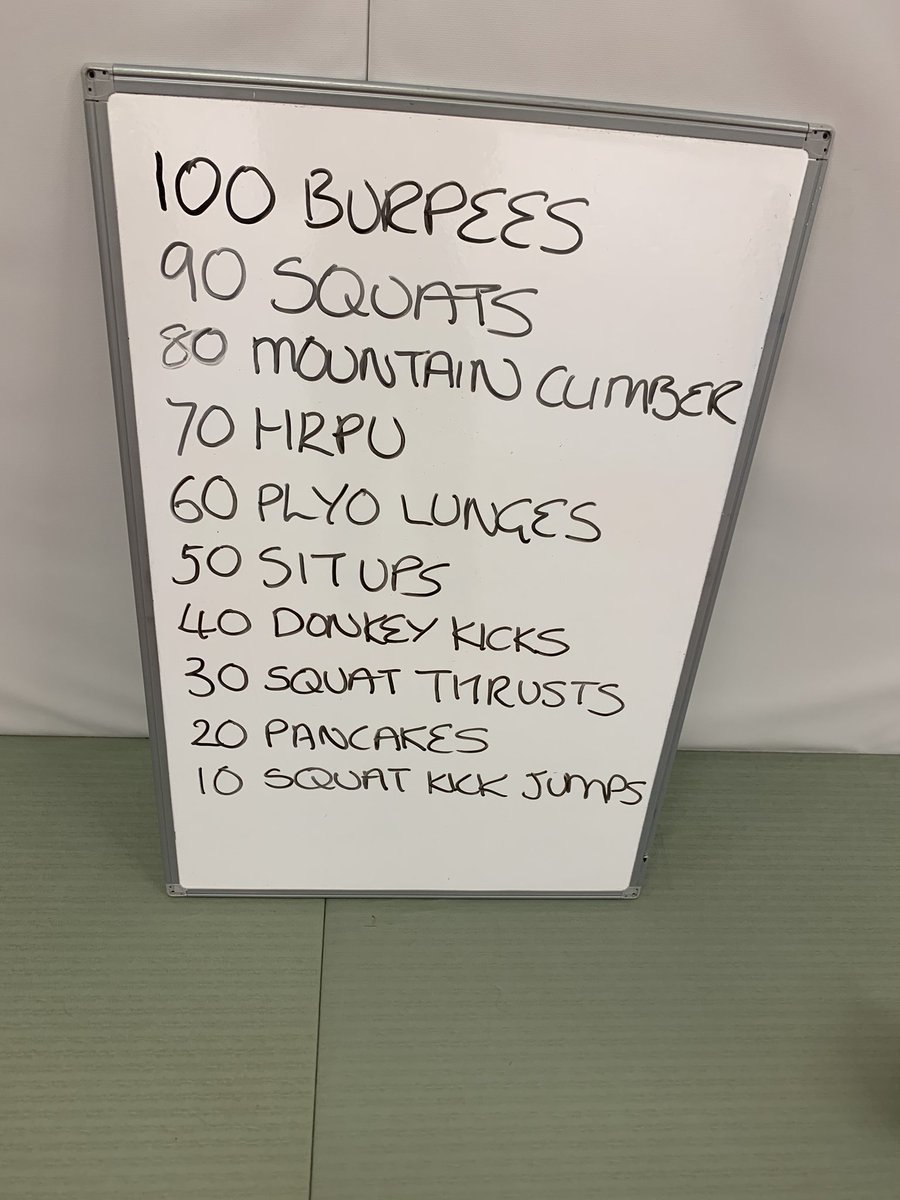 100 BURPEES
90 SQUATS
80 MOUNTAIN CLIMBER
70 HRPU
60 PLYO LUNGES
50 SIT UPS
40 DONKEY KICKS
30 SQUAT THRUSTS
20 PANCAKES
10 SQUAT KICK JUMPS